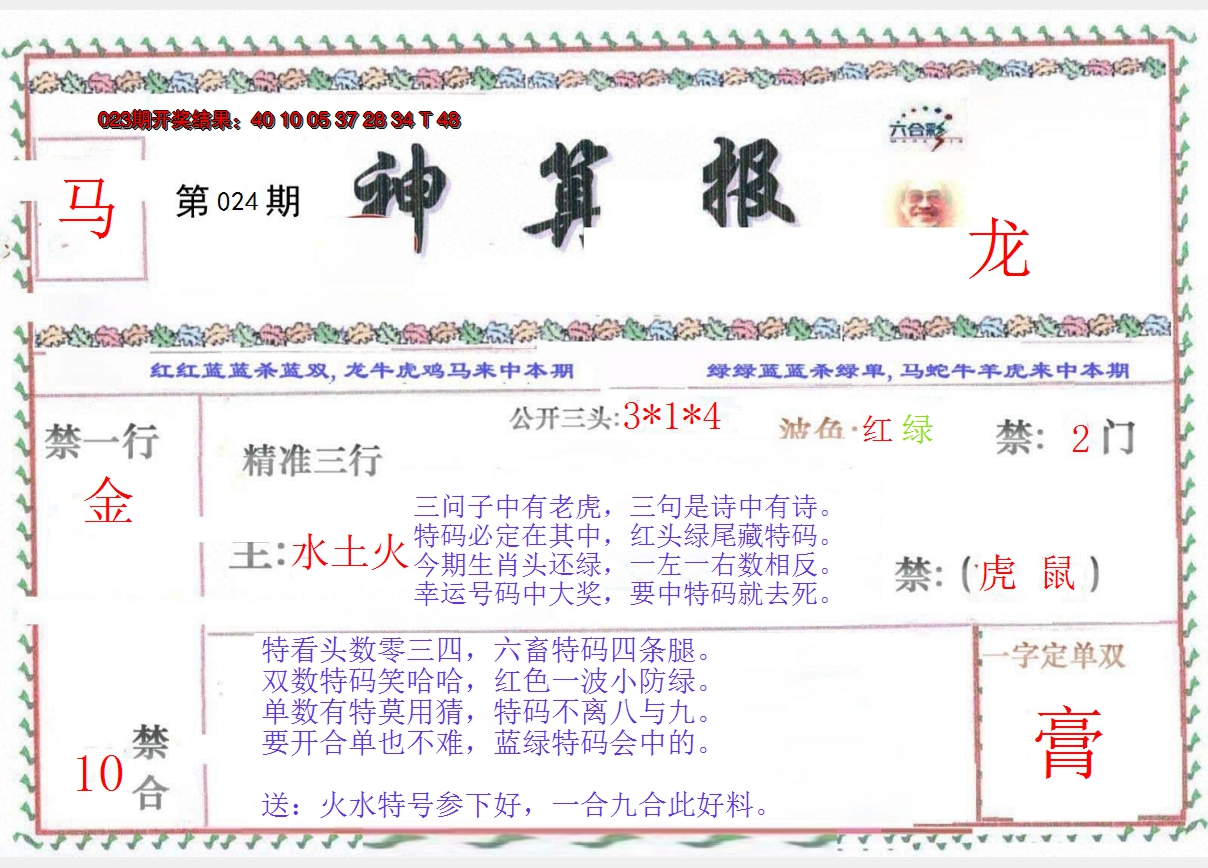 023期开奖结果：40 10 05 37 28 34 T 48
六合彩
马
第 024 期
神算报
龙
红红蓝蓝杀蓝双,龙牛虎鸡马来中本期
绿绿蓝蓝杀绿单,马蛇牛羊虎来中本期
禁一行
金
精准三行
主:水土火
公开三头:3*1*4
波色:红 绿
禁: 2 门
三问子中有老虎，三句是诗中有诗。
特码必定在其中，红头绿尾藏特码。
今期生肖头还绿，一左一右数相反。
幸运号码中大奖，要中特码就去死。
禁:（虎 鼠）
10 禁合
特看头数零三四，六畜特码四条腿。
双数特码笑哈哈，红色一波小防绿。
单数有特莫用猜，特码不离八与九。
要开合单也不难，蓝绿特码会中的。
送：火水特号参下好，一合九合此好料。
一字定单双
膏